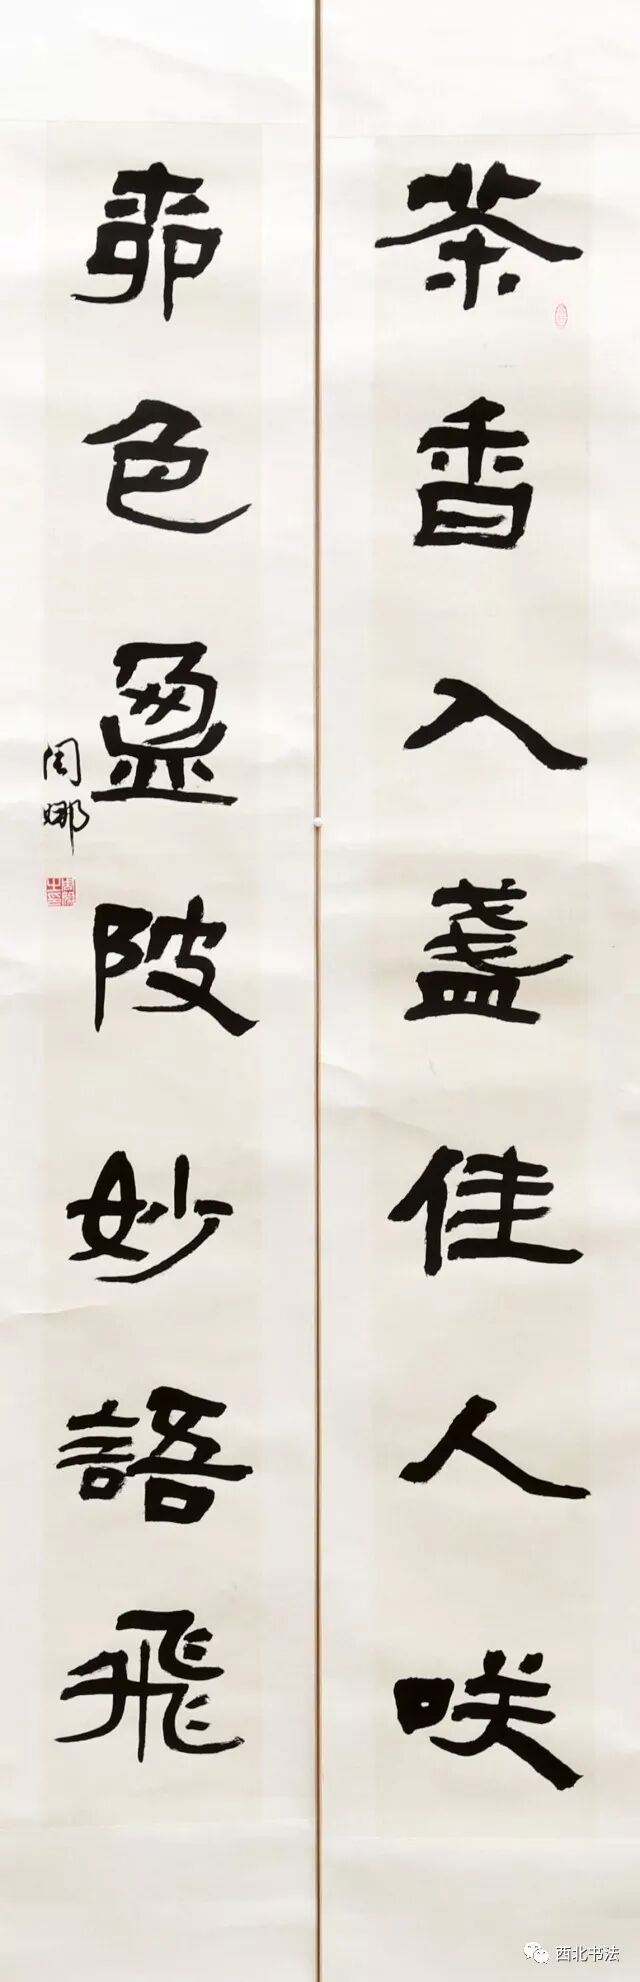 茶香入盞佳人咲
桺色盈陂妙語飛
周娜
西北书法